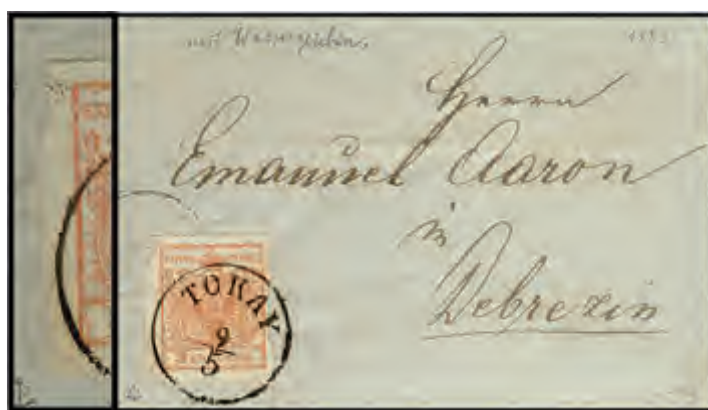 mit Wasserzeichen
Herrn
Emanuel Aaron
in
Debrezin
TOKAY
9
5